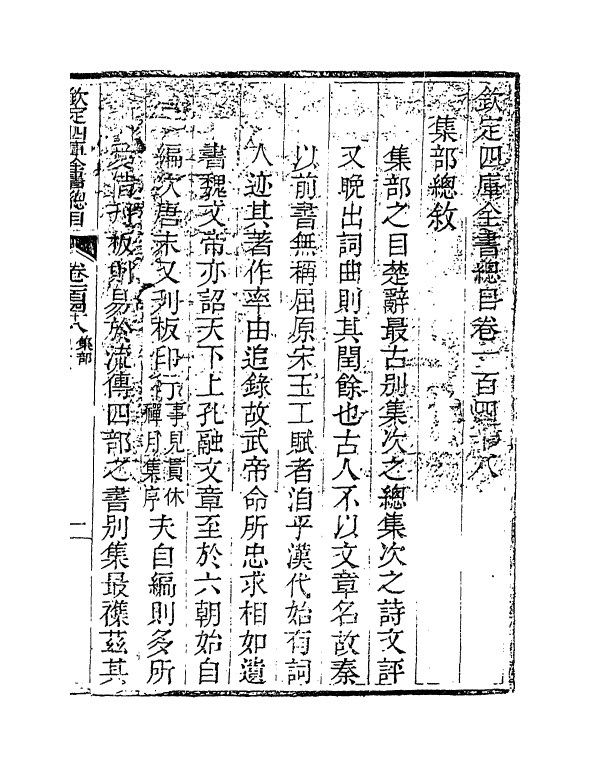 欽定四庫全書總目卷一百四十八
集部總敘
集部之目楚辭最古別集次之總集次之詩文評
又晚出詞曲則其閏餘也古人不以文章名故秦
以前書無稱屈原宋玉工賦者洎乎漢代始有詞
人迹其著作率由追錄故武帝命所忠求相如遺
書魏文帝亦詔天下上孔融文章至於六朝始自
編次唐末又刋板印行事見貫休禪月集序夫自編則多所
愛惜刋板則易於流傳四部之書別集最襍茲其
欽定四庫全書總目 卷一百四十八 集部 一